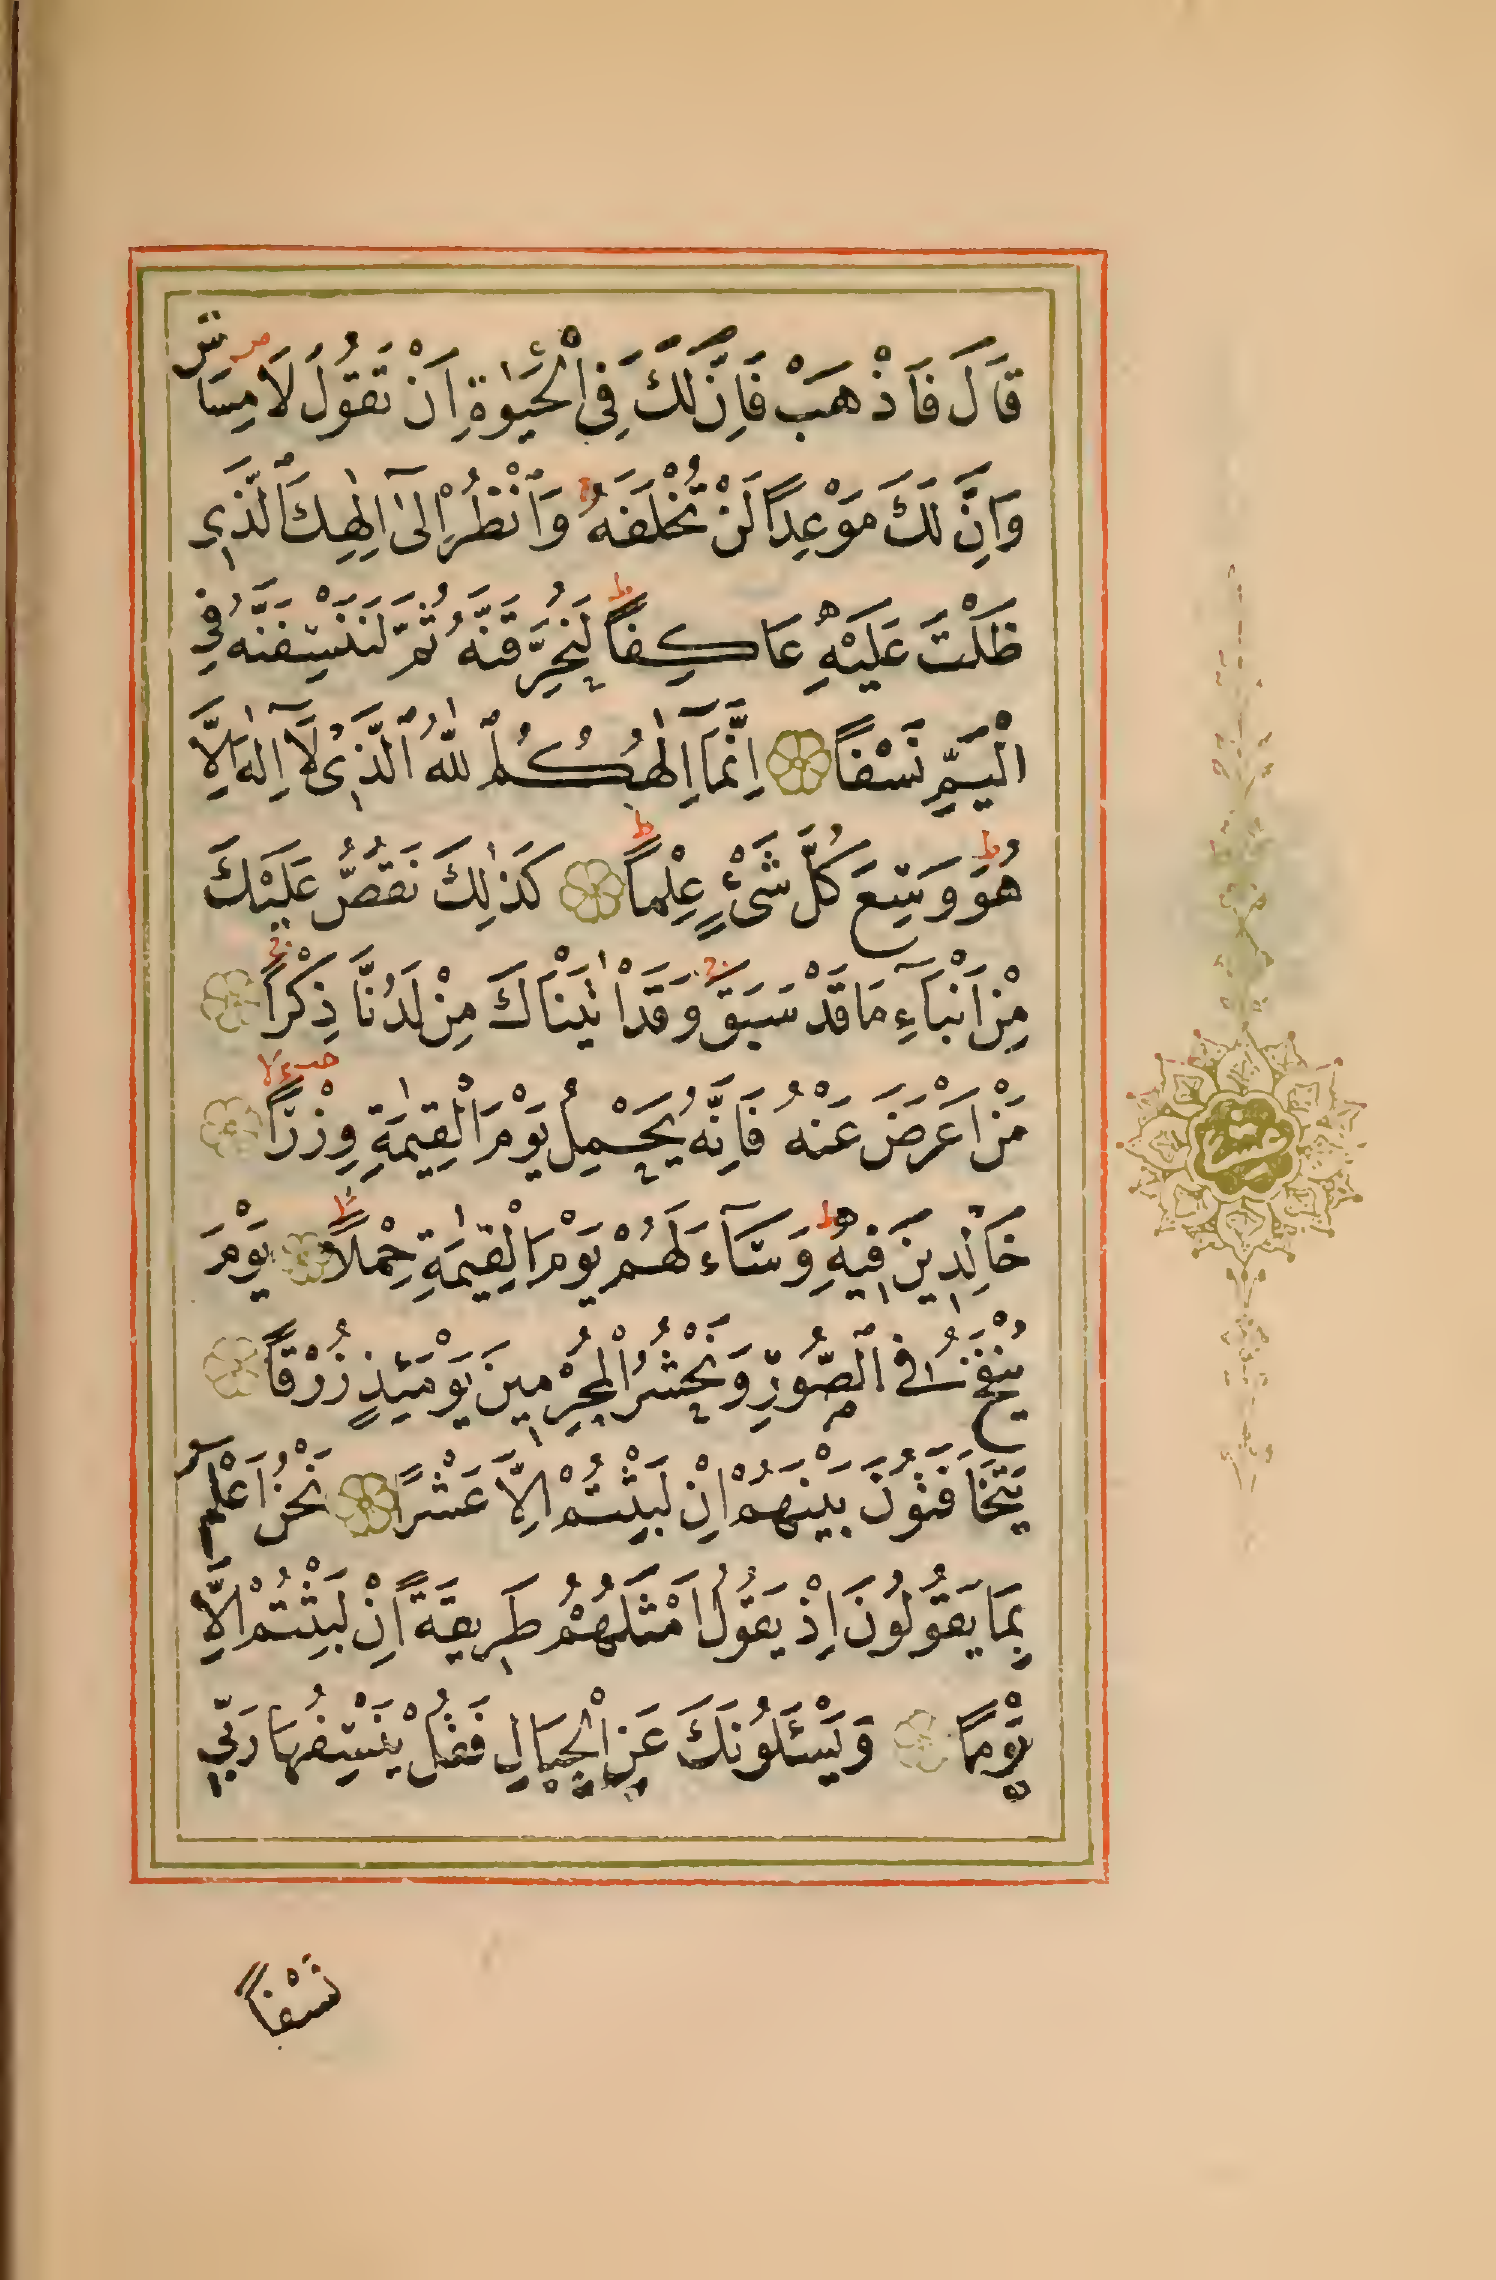 قَالَ فَاذْهَبْ فَاِنَّ لَكَ فِى الْحَيٰوةِ اَنْ تَقُولَ لَا مِسَاسَ
وَاِنَّ لَكَ مَوْعِدًا لَنْ تُخْلَفَهُ وَانْظُرْ اِلٰٓى اِلٰهِكَ الَّذِى
ظَلْتَ عَلَيْهِ عَاكِفًا لَنُحَرِّقَنَّهُ ثُمَّ لَنَنْسِفَنَّهُ فِى
الْيَمِّ نَسْفًا اِنَّمَٓا اِلٰهُكُمُ اللّٰهُ الَّذِى لَٓا اِلٰهَ اِلَّا
هُوَ وَسِعَ كُلَّ شَىْءٍ عِلْمًا كَذٰلِكَ نَقُصُّ عَلَيْكَ
مِنْ اَنْبَٓاءِ مَا قَدْ سَبَقَ وَقَدْ اٰتَيْنَاكَ مِنْ لَدُنَّا ذِكْرًا
مَنْ اَعْرَضَ عَنْهُ فَاِنَّهُ يَحْمِلُ يَوْمَ الْقِيٰمَةِ وِزْرًا
خَالِدِينَ فِيهِ وَسَٓاءَ لَهُمْ يَوْمَ الْقِيٰمَةِ حِمْلًا يَوْمَ
يُنْفَخُ فِى الصُّورِ وَنَحْشُرُ الْمُجْرِمِينَ يَوْمَئِذٍ زُرْقًا
يَتَخَافَتُونَ بَيْنَهُمْ اِنْ لَبِثْتُمْ اِلَّا عَشْرًا نَحْنُ اَعْلَمُ
بِمَا يَقُولُونَ اِذْ يَقُولُ اَمْثَلُهُمْ طَرِيقَةً اِنْ لَبِثْتُمْ اِلَّا
يَوْمًا وَيَسْئَلُونَكَ عَنِ الْجِبَالِ فَقُلْ يَنْسِفُهَا رَبِّى
نَسْفًا
عشر